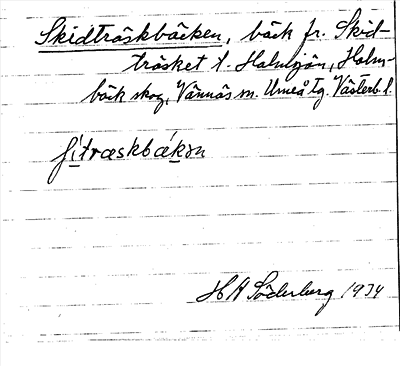 Skidträskbäcken, bäck fr. Skid-
träsket t. Holmsjön, Holm-
bäck skog, Vännäs sn. Umeå tg. Västerb. l.
ʃi̱træskbæ̱kən
H A Söderberg 1934